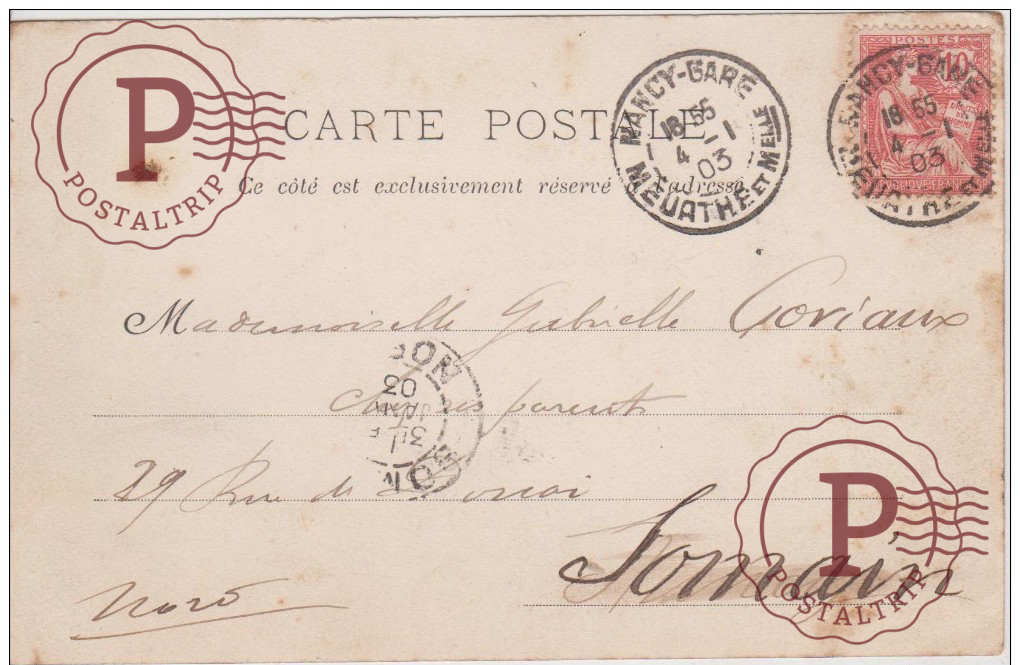 P
POSTALTRIP
CARTE POSTALE
Ce côté est exclusivement réservé à l'adresse
NANCY-GARE
18 55
4 - 1
03
MEURTHE ET MELLE
POSTES
10
DROITS DE L'HOMME
NANCY-GARE
18 55
4 - 1
03
MEURTHE ET MELLE
Mademoiselle Gabrielle Goriaux
chez ses parents
29 Rue de Douai
Somain
Nord
03
JANV
3E
P
POSTALTRIP